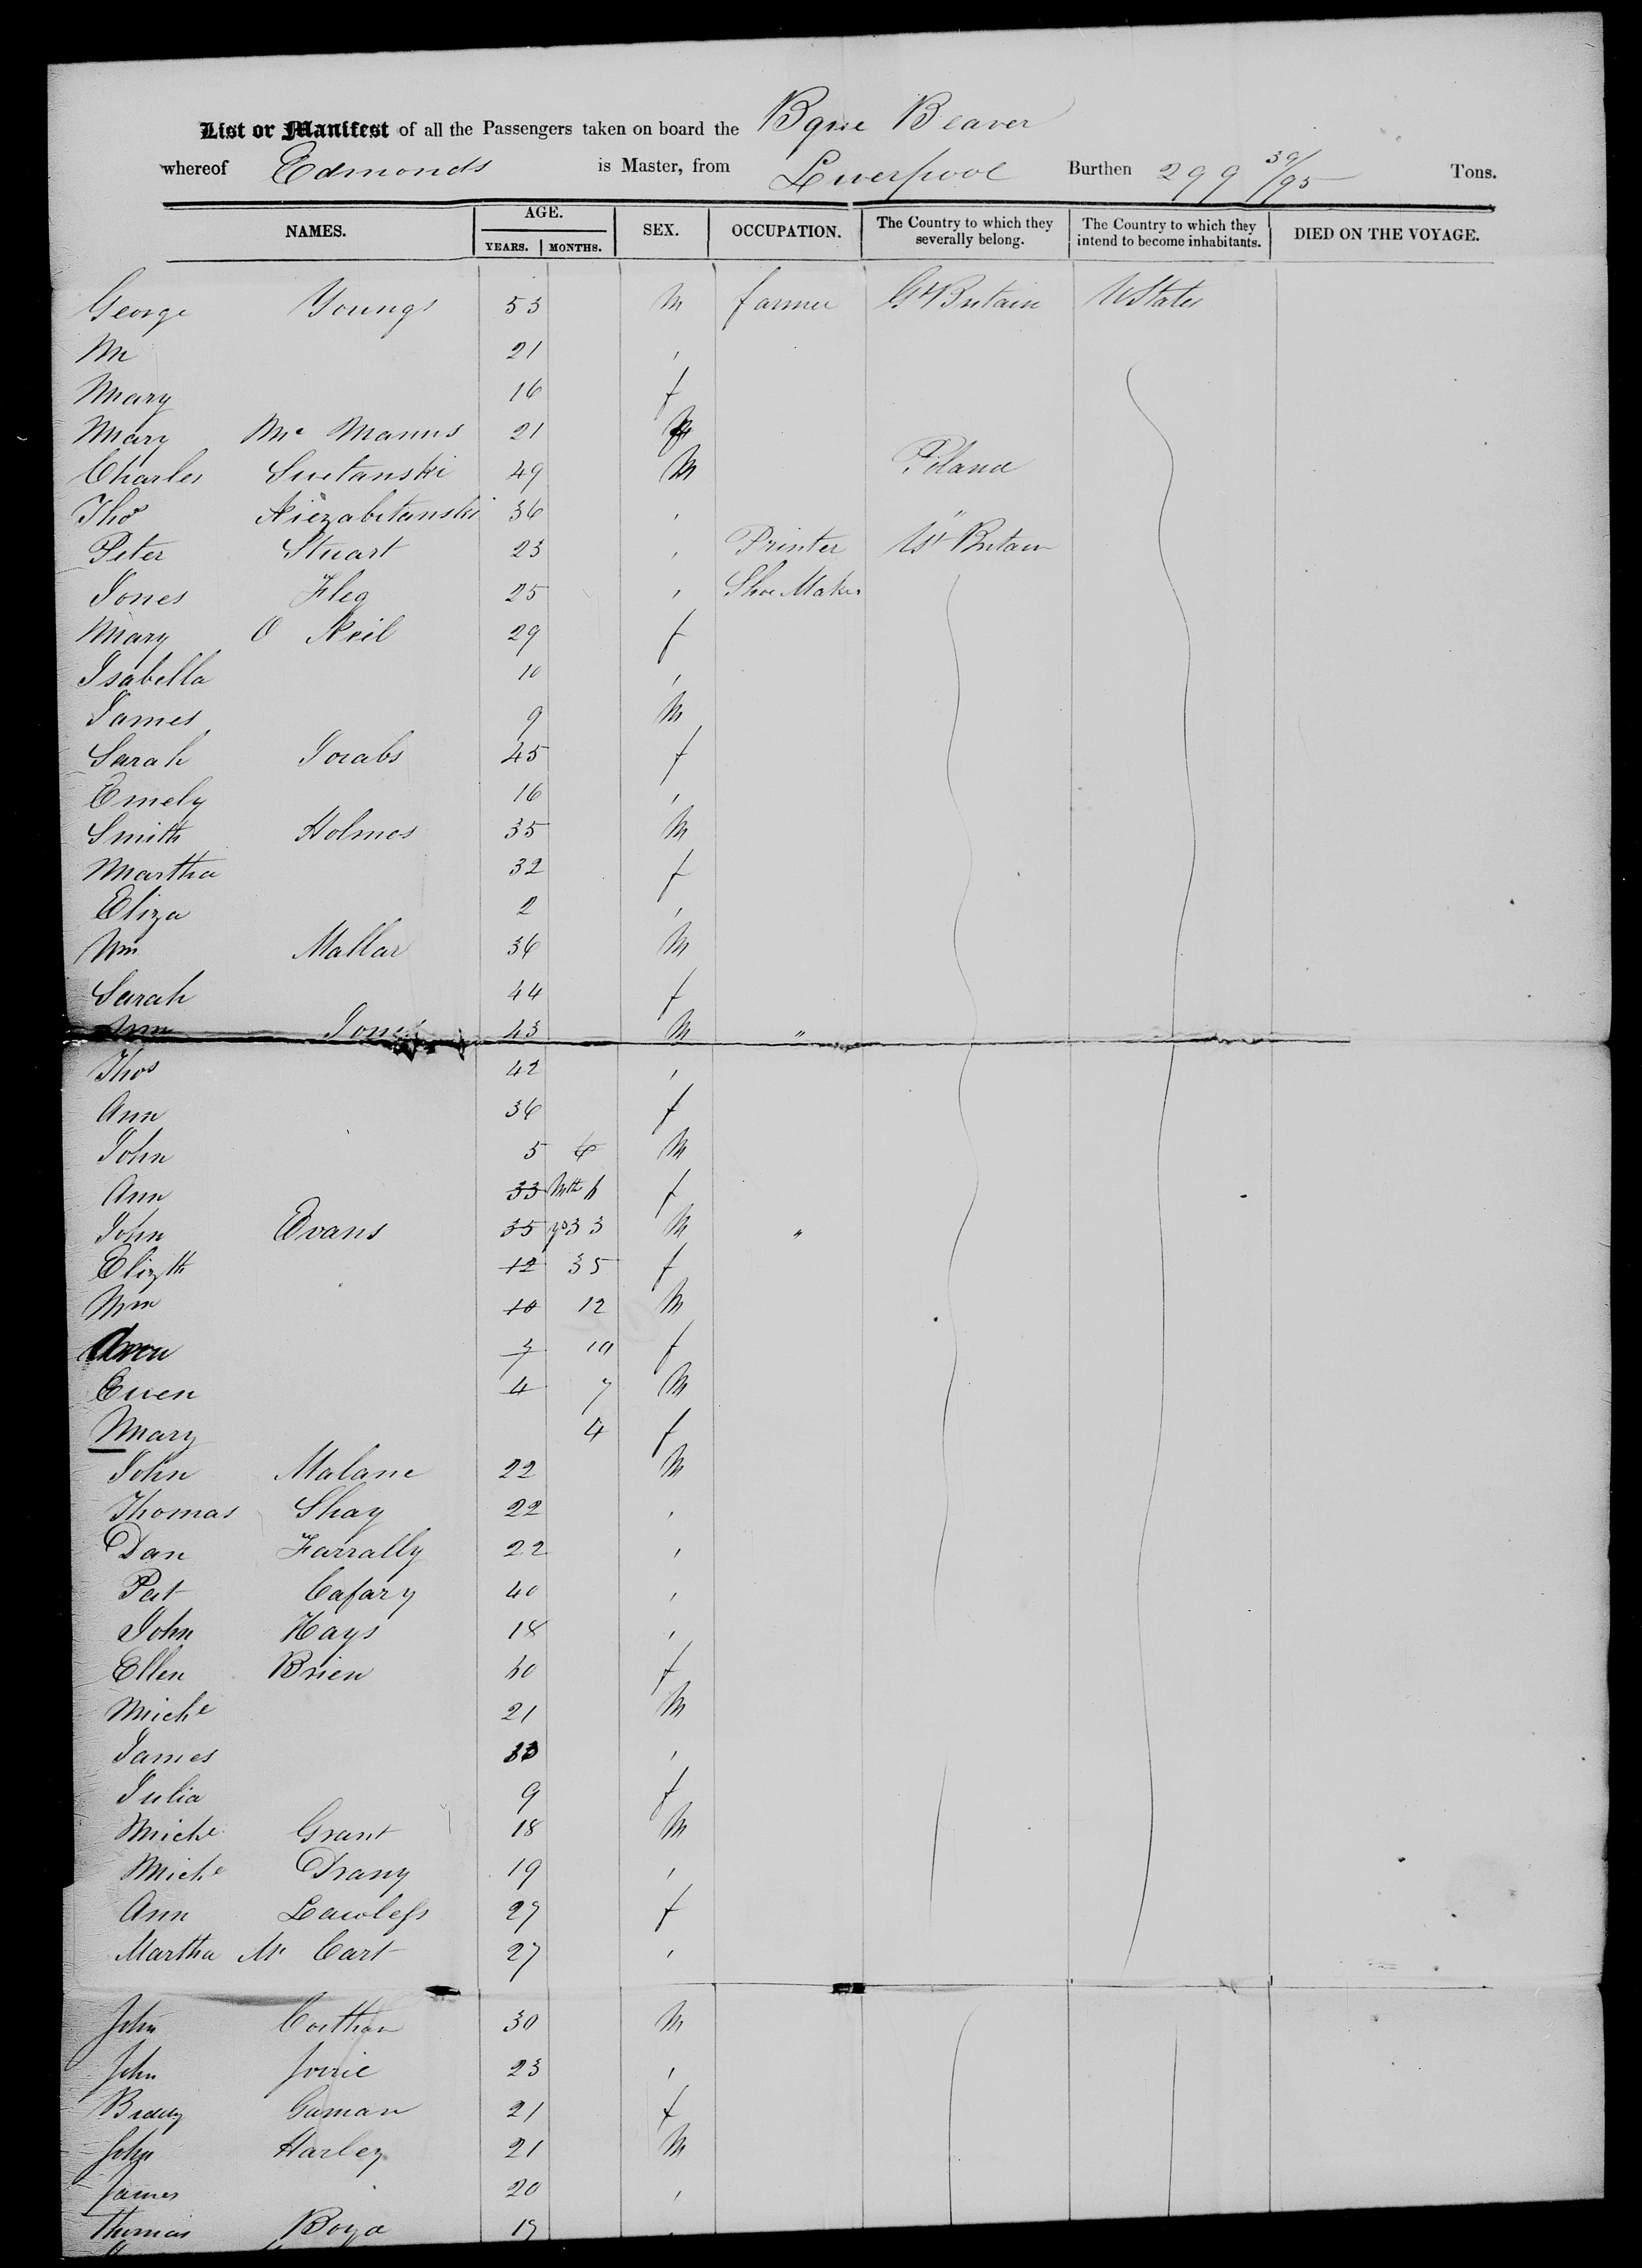 List or Manifest of all the Passengers taken on board the Bque Beaver
whereof Edmonds is Master, from Liverpool Burthen 299 39/95 Tons.
NAMES. AGE. YEARS. MONTHS. SEX. OCCUPATION. The Country to which they severally belong. The Country to which they intend to become inhabitants. DIED ON THE VOYAGE.
George Youngs 53 M farmer Gt Britain UStates
Wm 21 ,
Mary 16 f
Mary Mc Manus 21 f
Charles Suetanski 49 M Poland
Thos Niezabitanski 36 , "
Peter Stuart 23 , Printer Gt Britain
Jones Fleg 25 , Shoe Maker
Mary O Neil 29 f
Isabella 10 ,
James 9 M
Sarah Jocabs 45 f
Emely 16 ,
Smith Holmes 35 M
Martha 32 f
Eliza 2 ,
Wm Mallar 36 M
Sarah 44 f
Wm Jones 43 M "
Thos 42 ,
Ann 36 f
John 5 6 M
Ann 33 Mth 6 f
John Evans 35 yrs 33 M "
Elizth 12 35 f
Wm 10 12 M
7 10 f
Euen 4 7 M
Mary 4 f
John Malane 22 M
Thomas Shay 22 ,
Dan Farrally 22 ,
Pat Cafary 40 ,
John Hays 18 ,
Ellen Brien 60 f
Michl 21 M
James ,
Julia 9 f
Michl Grant 18 M
Michl Drany 19 ,
Ann Lawless 27 f
Martha Mc Cart 27 ,
John 30 M
John 23 ,
Biddy Gaman 21 f
John Harley 21 M
James 20 ,
Thomas Boyd 19 ,